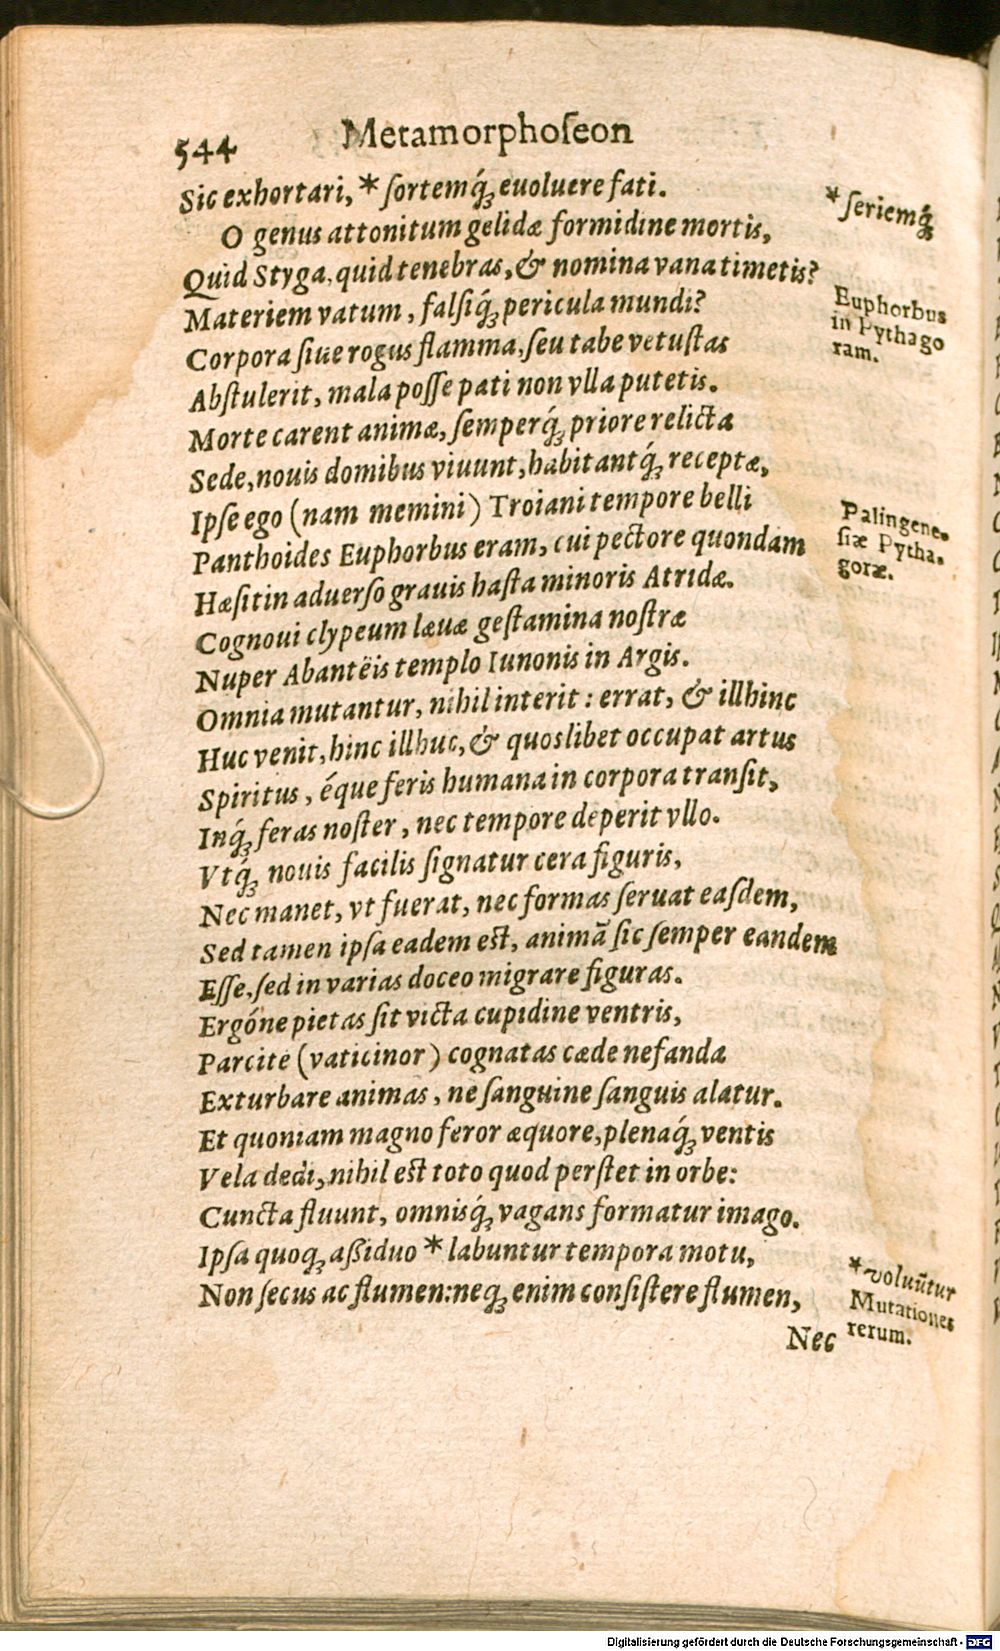 544 Metamorphoſeon
Sic exhortari, * ſortemq́; euoluere fati.
* ſeriemq́;
O genus attonitum gelidæ formidine mortis,
Quid Styga, quid tenebras, & nomina vana timetis?
Materiem vatum, falſiq́; pericula mundi?
Euphorbus
in Pythago
ram.
Corpora ſiue rogus flamma, ſeu tabe vetuſtas
Abſtulerit, mala poſſe pati non vlla putetis.
Morte carent animæ, ſemperq́; priore relicta
Sede, nouis domibus viuunt, habitantq́; receptæ,
Ipſe ego (nam memini) Troiani tempore belli
Panthoides Euphorbus eram, cui pectore quondam
Palingene-
ſiæ Pytha-
goræ.
Hæſit in aduerſo grauis haſta minoris Atridæ.
Cognoui clypeum læuæ geſtamina noſtræ
Nuper Abantëis templo Iunonis in Argis.
Omnia mutantur, nihil interit: errat, & illhinc
Huc venit, hinc illhuc, & quoslibet occupat artus
Spiritus, éque feris humana in corpora tranſit,
Inq́; feras noſter, nec tempore deperit vllo.
Vtq́; nouis facilis ſignatur cera figuris,
Nec manet, vt fuerat, nec formas ſeruat eaſdem,
Sed tamen ipſa eadem est, animã ſic ſemper eandem
Eſſe, ſed in varias doceo migrare figuras.
Ergóne pietas ſit victa cupidine ventris,
Parcite (vaticinor) cognatas cæde nefanda
Exturbare animas, ne ſanguine ſanguis alatur.
Et quoniam magno feror æquore, plenaq́; ventis
Vela dedi, nihil est toto quod perſtet in orbe:
Cuncta fluunt, omnisq́; vagans formatur imago.
Ipſa quoq; aßiduo * labuntur tempora motu,
* voluũtur
Mutationes
rerum.
Non ſecus ac flumen: neq; enim conſiſtere flumen,
Nec
Digitalisierung gefördert durch die Deutsche Forschungsgemeinschaft - DFG